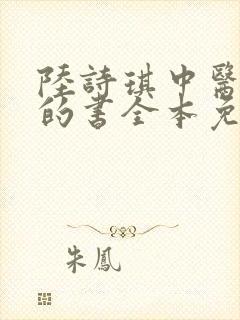 陸詩琪中醫
的書全本免
朱鳳